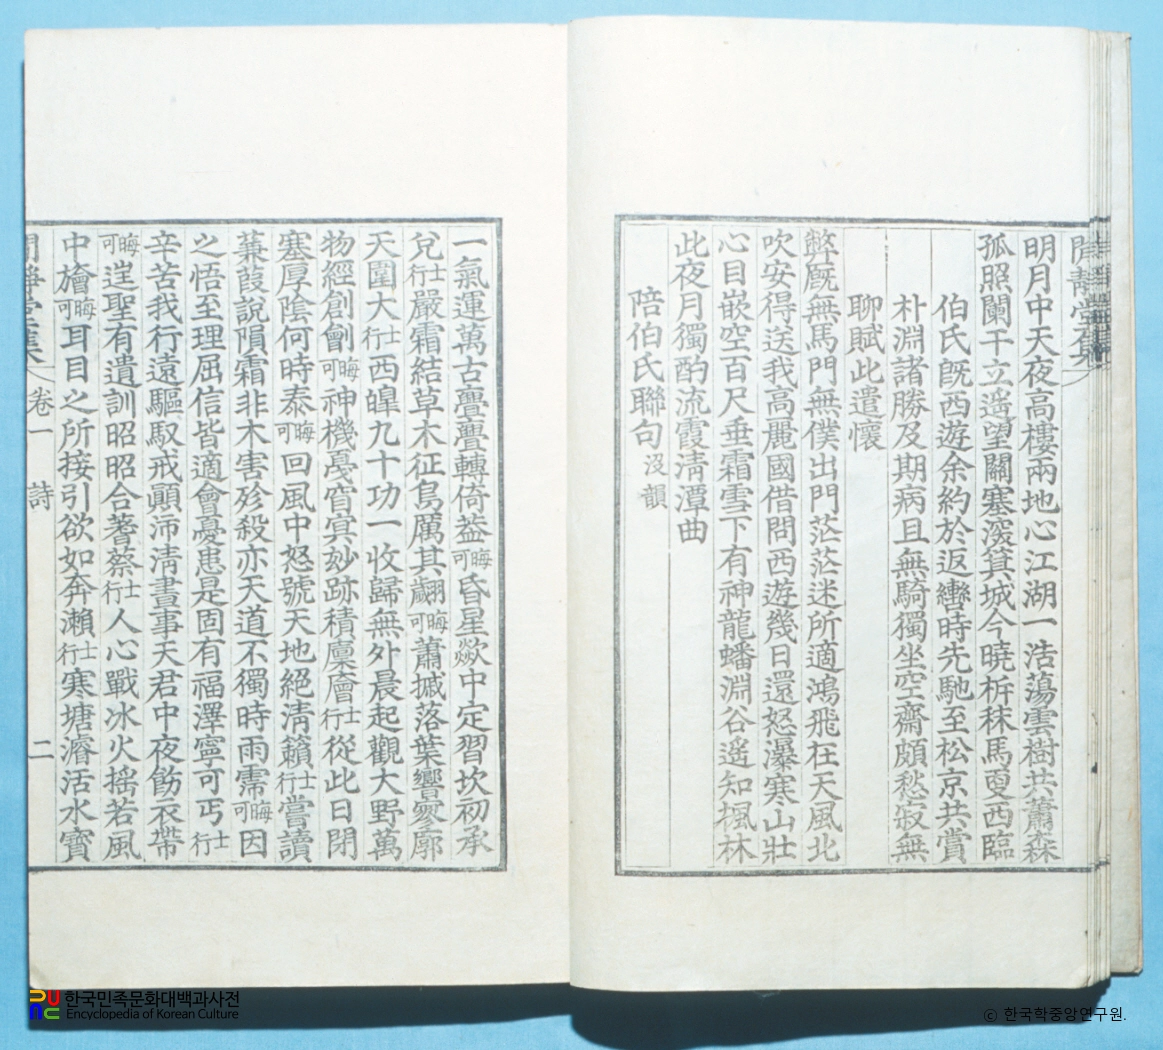 閒靜堂集
明月中天夜高樓兩地心江湖一浩蕩雲樹共蕭森
孤照闌干立遥望關塞深箕城今曉折秣馬更西臨
伯氏旣西遊余約於返轡時先馳至松京共賞
朴淵諸勝及期病且無騎獨坐空齋頗愁寂無
聊賦此遣懷
弊厩無馬門無僕出門茫茫迷所適鴻飛在天風北
吹安得送我高麗國借問西遊幾日還怒瀑寒山壯
心目嵌空百尺垂霜雪下有神龍蟠淵谷遥知楓林
此夜月獨酌流霞淸潭曲
陪伯氏聯句 沒韻
一氣運萬古亹亹轉倚盖 可晦 昏星欻中定習坎初承
兌 行士 嚴霜結草木征鳥厲其翽 可晦 蕭摵落葉響寥廓
天圍大 行士 西皥九十功一收歸無外晨起觀大野萬
物經創劊 可晦 神機戞窅冥妙跡積廩廥 行士 從此日閉
塞厚陰何時泰 可晦 回風中怒號天地絕淸籟 行士 嘗讀
蒹葭說隕霜非木害殄殺亦天道不獨時雨霈 可晦 因
之悟至理屈信皆適會憂患是固有福澤寧可丐 行士
辛苦我行遠驅馭戒顚沛淸晝事天君中夜飭衣帶
可晦 逞聖有遺訓昭昭合蓍蔡 行士 人心戰冰火搖若風
中旝 可晦 耳目之所接引欲如奔瀨 行士 寒塘濬活水寶
卷一 詩 二
한국민족문화대백과사전
Encyclopedia of Korean Culture
ⓒ 한국학중앙연구원.